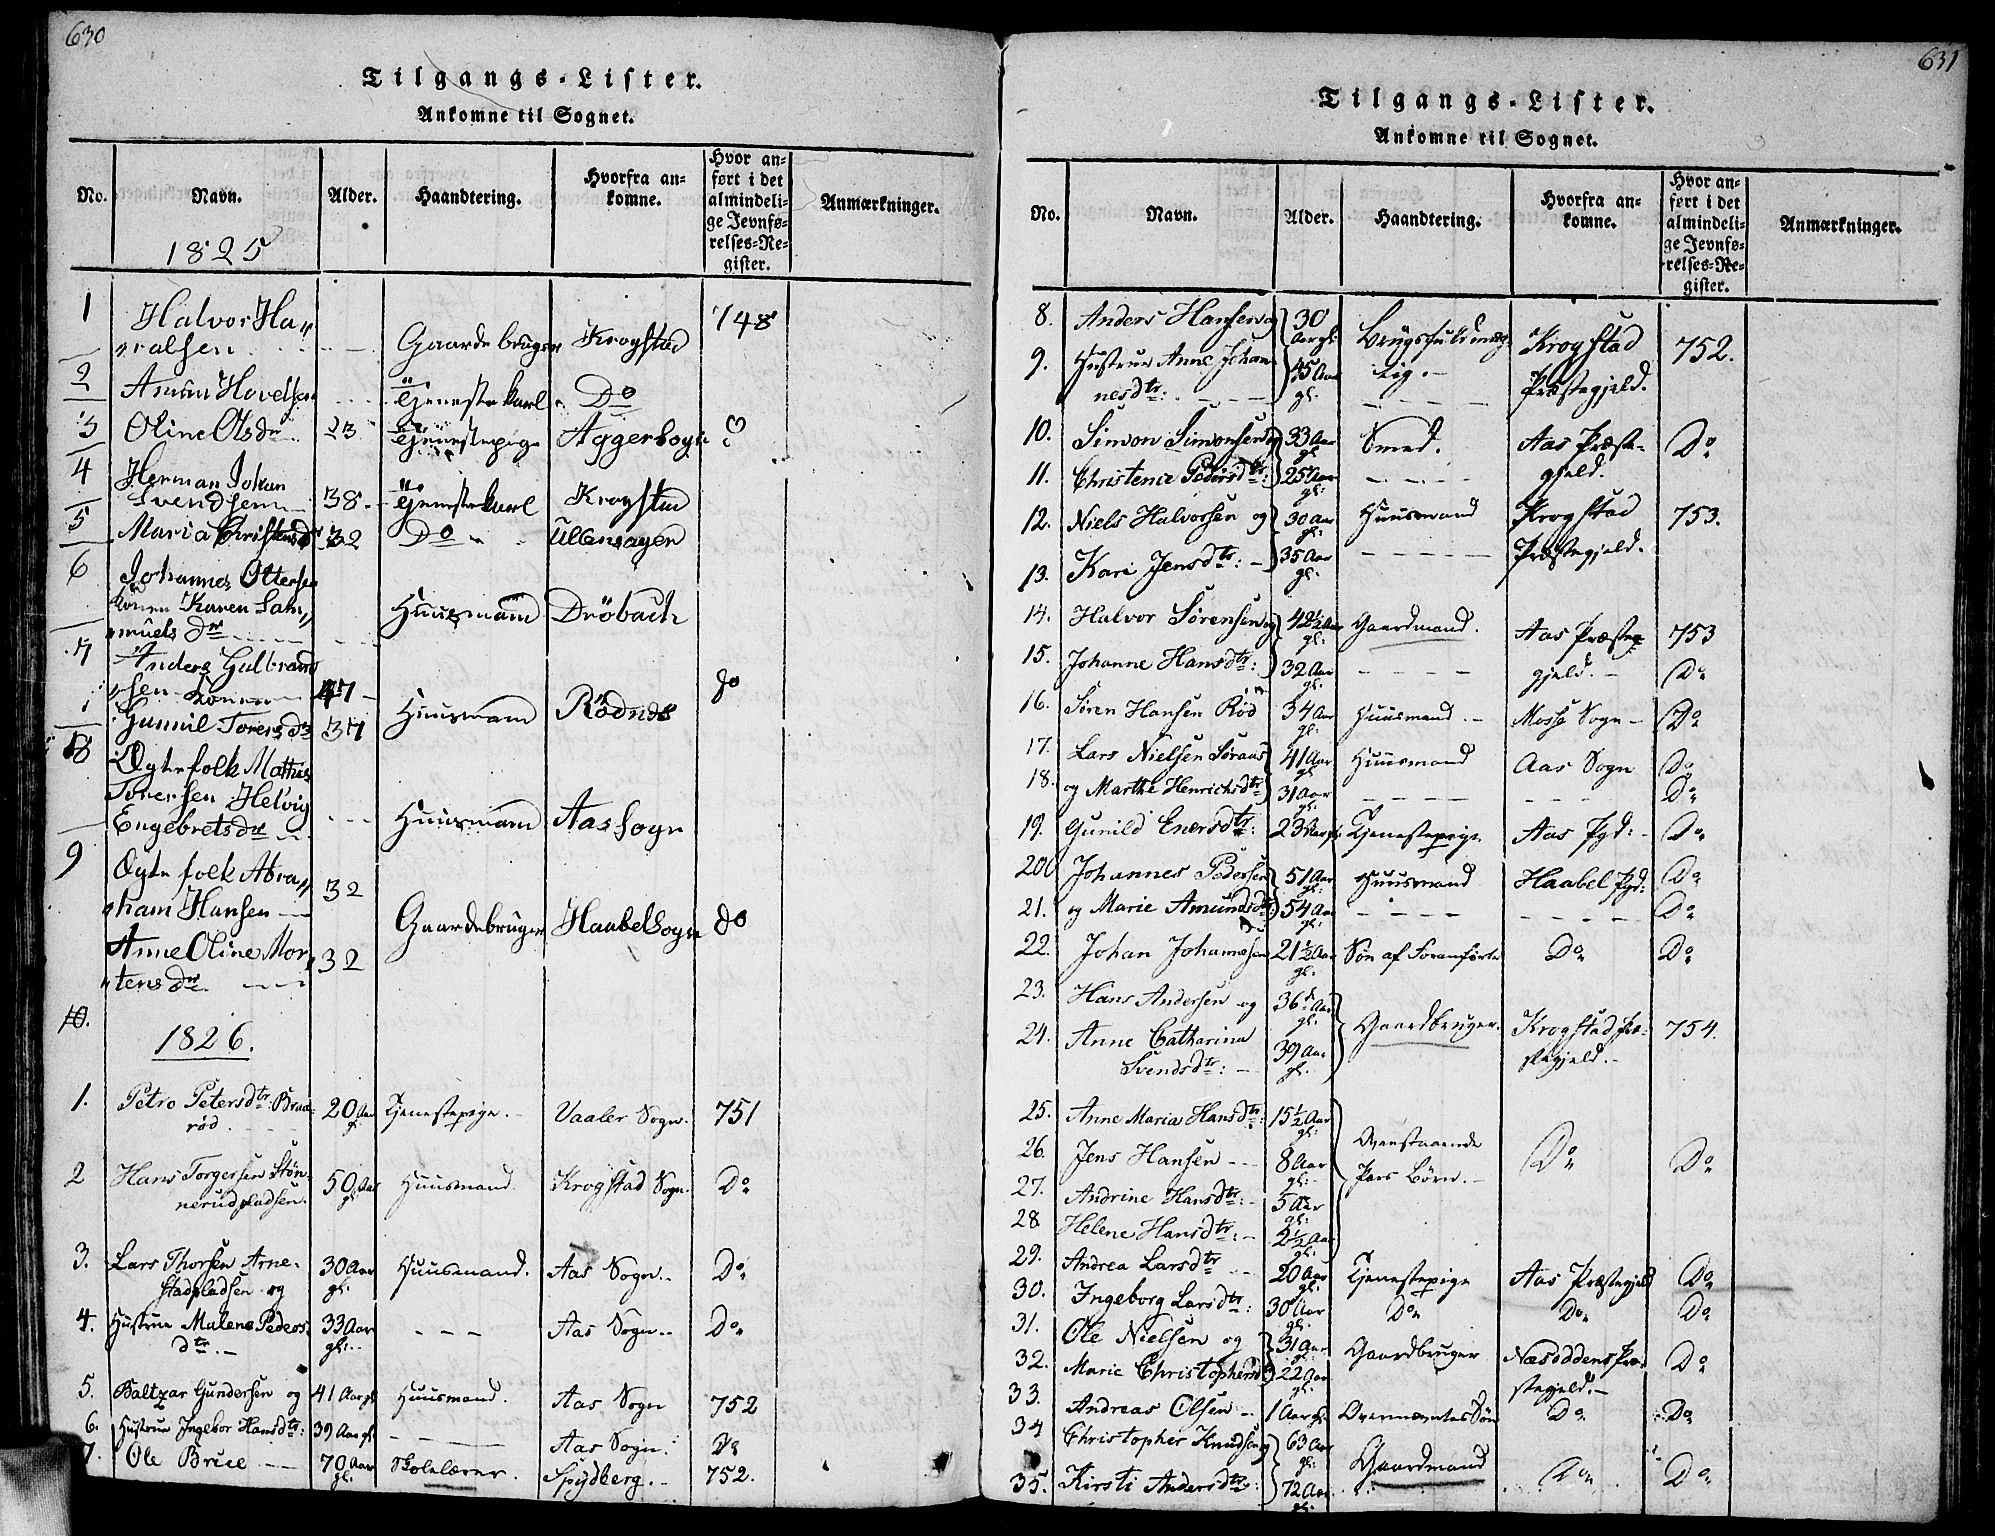 630
Tilgangs-Lister.
Ankomne til Sognet.
No. Navn. Alder. Haandtering. Hvorfra an=komne. Hvor an=ført i det almindeli=ge Jevnfø=relses=Re=gister. Anmærkninger.
1825
1 Halvor Ha„
„ralsen Gaardebruger Krogstad 748
2 Amun Hovelsen Tjenestekarl Do
3 Oline Olsdr 23 Tjenestepige Aggersogn
4 Herman Johan
Svendsen 38 Tjenestekarl Krogstad
5 Maria Christensdr 32 Do Ullensagen
6 Johannes Ottersen
Konen Karen Sam„
„muels dr Huusmann Dröbach
7 Anders Gulbrand
„sen Konen 47 Huusmann Rödnes do
Gunnil Toresdr 37
8 Ægtefolk Mathis
Toresen Helvig
Engebretsdr Huusmann Aas sogn
9 Ægte folk Abra„
„ham Hansen 32 Gaardebruger Haabel Sogn do
Anne Oline Mor„
„tensdr 32
10.
1826.
1. Petro Petersdtr: Braa=
rød 20 Aar gl. Tjenestepige. Vaaler Sogn. 751
2 Hans Torgersen Støn=
nerudpladsen. 50 Aar gl. Huusmand. Krogstad Sogn. Do
3. Lars Thorsen Arne=
stadpladsen og 30 Aar gl: Huusmand. Aas Sogn. Do
4. Hustrue Malene Peders
dtr. 33 Aar gl: Aas Sogn. Do
5. Baltzar Gundersen og 41 Aar gl Huusmand. Aas Sogn 752
6. Hustrue Ingebor Hansdtr: 39 Aar gl: Aas Sogn. Do
7. Ole Brice 70 Aar gl: Skolelærer. Spydberg. 752.
631
Tilgangs-Lister.
Ankomne til Sognet.
No. Navn. Alder. Haandtering. Hvorfra an=komne. Hvor an=ført i det almindeli=ge Jevnfø=relses=Re=gister. Anmærkninger.
8. Anders Hansen og 30 Aar gl: Krogstad 752.
9. Hustrue Anne Johan
nesdtr: 45 Aar gl. Præstegjeld.
10. Simon Simonsen og 33 Aar gl. Smed. Aas Præste=
11. Christence Pedersdtr: 25 Aar gl: gjeld. Do
12. Niels Halvorsen og 30 Aar gl: Huusmand Krogstad 753.
13. Kari Jensdtr: 35 Aar gl. Præstegjeld.
14. Halvor Sørensen og 42½ Aar gl: Gaardmand. Aas Præste 753
15. Johanne Hansdtr: 32 Aar gl. gjeld. Do
16. Søren Hansen Rød 34 Aar gl. Huusmand. Mosse Sogn Do
17. Lars Nielsen Søraas 41 Aar gl Huusmand Aas Sogn Do
18. og Marthe Henrichsdtr 31 Aar gl: Do
19. Gunild Enersdtr: 23 Aar gl Tjenestepige Aas Pgd: Do
20. Johannes Pedersen 51 Aar gl: Huusmand Haabel Pgd: Do
21. og Marie Amundsdtr 54 Aar gl: Do
22. Johan Johannesen 21½ Aar gl. Søn af Foranførte Do Do
23. Hans Andersen og 36 Aar gl.
24. Anne Catharina
Svendsdtr: 39 Aar gl. Gaardbruger. Krogstad Præ=
stegjeld. 754.
25. Anne Maria Hansdtr: 15½ Aar gl:
26. Jens Hansen 8 Aar gl: Ovenstaaende
Pars Børn. Do Do
27. Andrine Hansdtr: 5 Aar gl:
28 Helene Hansdtr: 2½ Aar gl:
29. Andrea Larsdtr 20 Aar gl Tjenestepige Aas Præstegjeld Do
30. Ingeborg Larsdtr: 30 Aar gl. Do Do Do
31. Ole Nielsen og 31 Aar gl: Gaardbruger Næsoddens Præ=
32. Marie Christophersd 22 Aar gl. stegjeld. Do
33. Andreas Olsen 1 Aar gl: Ovennævntes Søn Do Do
34 Christopher Knudsen og 63 Aar gl: Gaardmand Do Do
35. Kirsti Andersdtr: 72 Aar gl: